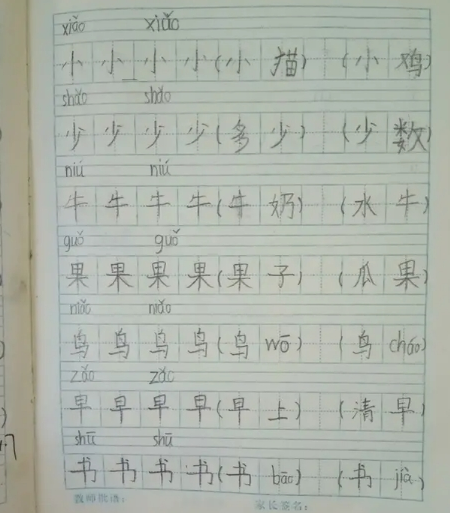 xiǎo xiǎo
小 小 小 小(小 猫) (小 鸡)
shǎo shǎo
少 少 少 少(多 少) (少 数)
niú niú
牛 牛 牛 牛(牛 奶) (水 牛)
guǒ guǒ
果 果 果 果(果 子) (瓜 果)
niǎo niǎo
鸟 鸟 鸟 鸟(鸟 wō) (鸟 cháo)
zǎo zǎo
早 早 早 早(早 上) (清 早)
shū shū
书 书 书 书(书 bāo) (书 jià)
教师批语: 家长签名: